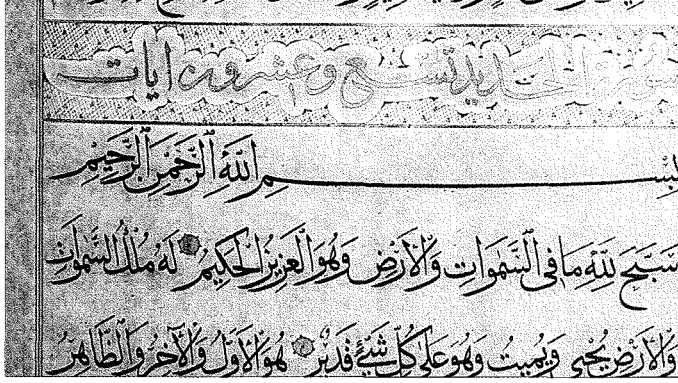 سورة الحديد تسع وعشرون ايات
بسم الله الرحمن الرحيم
سَبَّحَ لِلّٰهِ مَا فِي السَّمٰوَاتِ وَالْاَرْضِ وَهُوَ الْعَزِيزُ الْحَكِيمُ لَهُ مُلْكُ السَّمٰوَاتِ
وَالْاَرْضِ يُحْيِي وَيُمِيتُ وَهُوَ عَلٰى كُلِّ شَيْءٍ قَدِيرٌ هُوَ الْاَوَّلُ وَالْاٰخِرُ وَالظَّاهِرُ